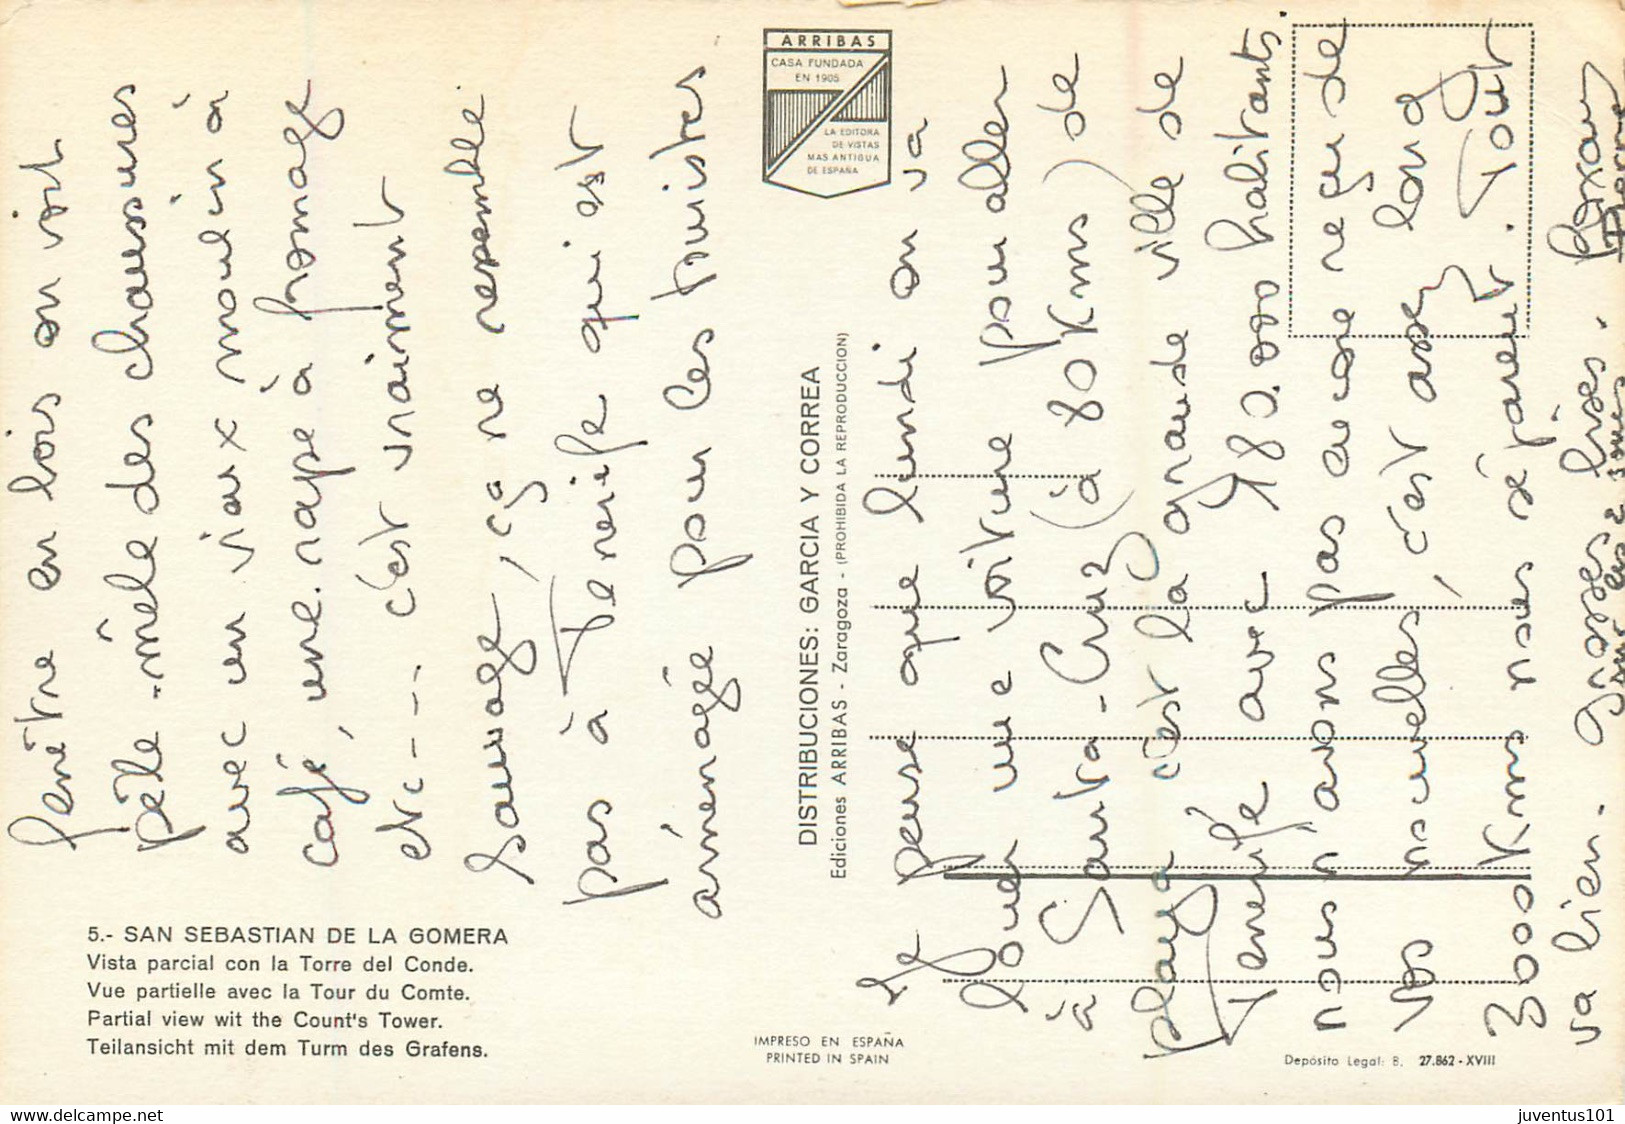 fenêtre en bois on voit
pêle-mêle des chaussures
avec un vieux moulin à
café, une rape à fromage
etc--- c'est vraiment
sauvage, ça ne ressemble
pas à Tenerife qui est
aménagé pour les touristes
5.- SAN SEBASTIAN DE LA GOMERA
Vista parcial con la Torre del Conde.
Vue partielle avec la Tour du Comte.
Partial view wit the Count's Tower.
Teilansicht mit dem Turm des Grafens.
ARRIBAS
CASA FUNDADA
EN 1905
LA EDITORA
DE VISTAS
MAS ANTIGUA
DE ESPAÑA
DISTRIBUCIONES: GARCIA Y CORREA
Ediciones ARRIBAS - Zaragoza - (PROHIBIDA LA REPRODUCCION)
IMPRESO EN ESPAÑA
PRINTED IN SPAIN
Je pense que lundi on va
louer une voiture pour aller
à Santa-Cruz (à 80 Kms) de
playa c'est la grande ville de
Tenerife avec 180.000 habitants.
nous n'avons pas encore reçu de
vos nouvelles, c'est assez long
3000 Kms nous séparent. Tout
va bien. Grosses bises.
Deposito Legal: B. 27.862-XVIII
juventus101